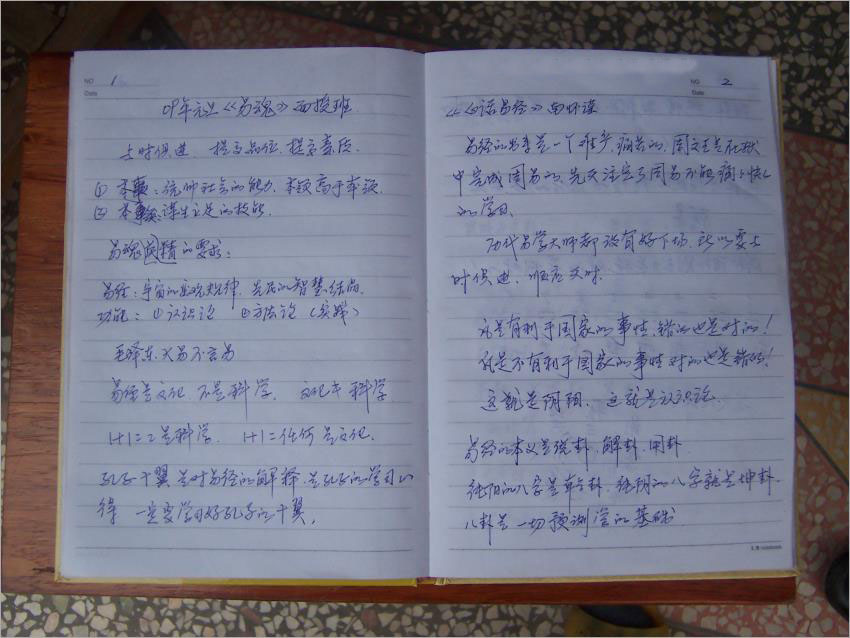 NO 1
Date
09年元旦《易魂》面授班
与时俱进、提高品位、提高素质。
① 本领：统帅社会的能力，本领高于本领
② 本领：谋生立足的技能。
易魂 精的要求：
易经：宇宙的 规律，先民的智慧结晶
功能： ①认识论 ②方法论（实践）
毛泽东 大易不言易
易经是文化，不是科学。 文化≠科学
1+1=2是科学， 1+1=任何是文化。
孔子十翼是对易经的解释，是孔子的学习心
得 一定要学习好孔子的十翼。
NO 2
Date
《白话易经》南怀谨
易经的出书是一个难产，痛苦的，周文王是在狱
中完成周易的，先文注定了周易不能痛痛快快
的学用
历代易学大师都没有好下场，所以要与
时俱进，顺应文时
凡是有利于国家的事情，错的也是对的！
凡是不有利于国家的事情对的也是错的！
这就是阴阳，这就是认识论。
易经的本义是统卦，解卦，用卦
纯阳的八字是乾卦，纯阴的八字就是坤卦，
八卦是一切预测学的基础